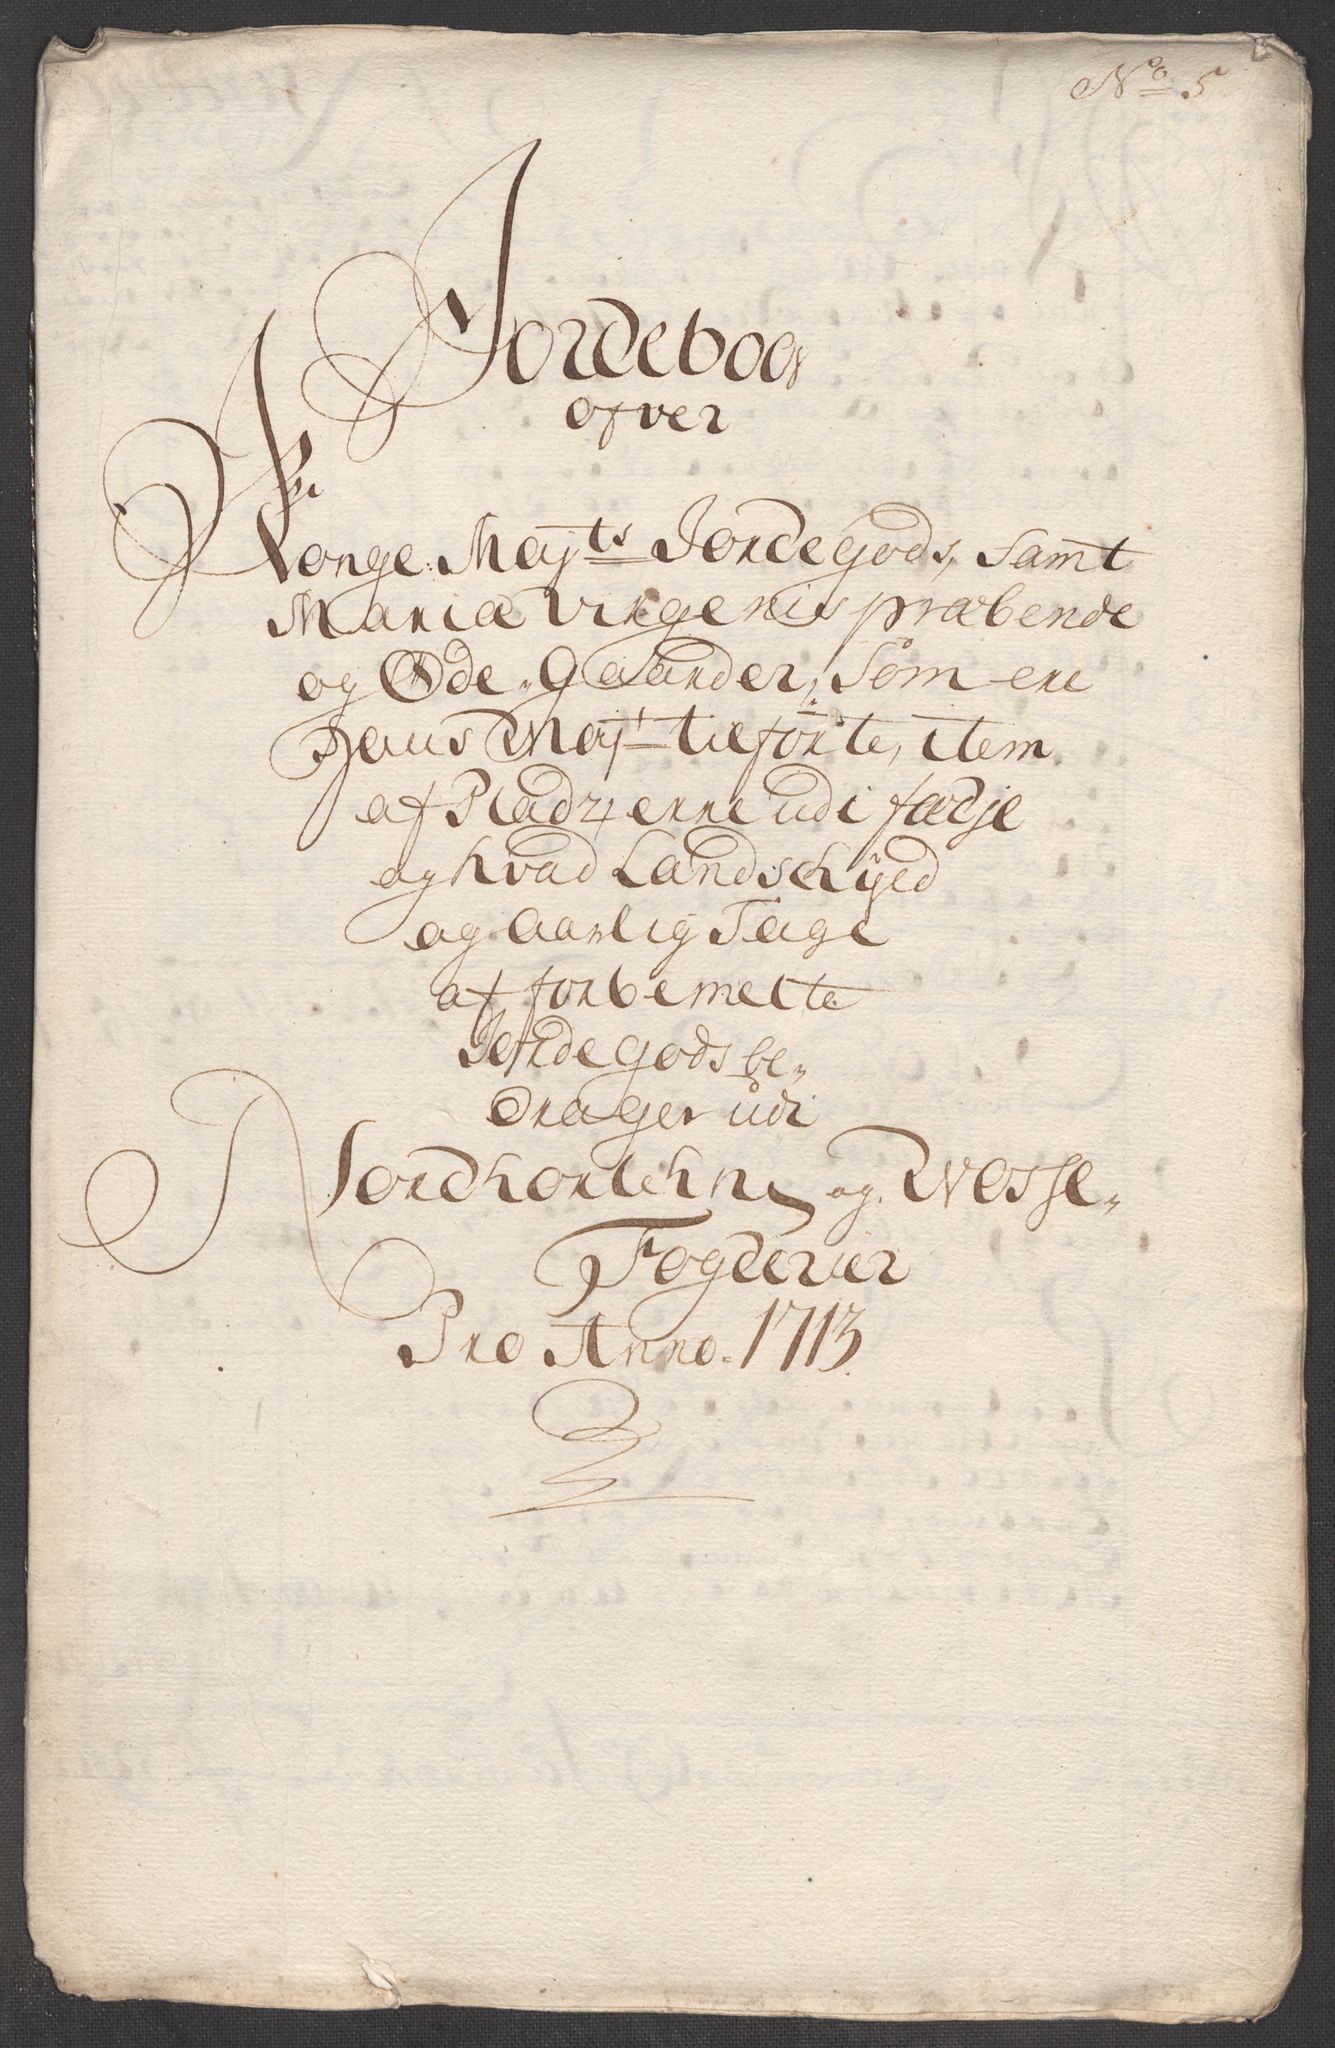 No 5
Jordebog
ofver
Konge: Mayts Jordegods, samt
Mariæ Virgenis præbende
og Øde-Gaarder, som ere
Hans Mayt tilførte, item
af Pladzerne udi fædje
og hvad Landschyld
og aarlig Tage
af forbemelte
Jordegods be-
drager udi
Nordhorlehn og Wosse-
Fogderier
Pro Anno. 1713